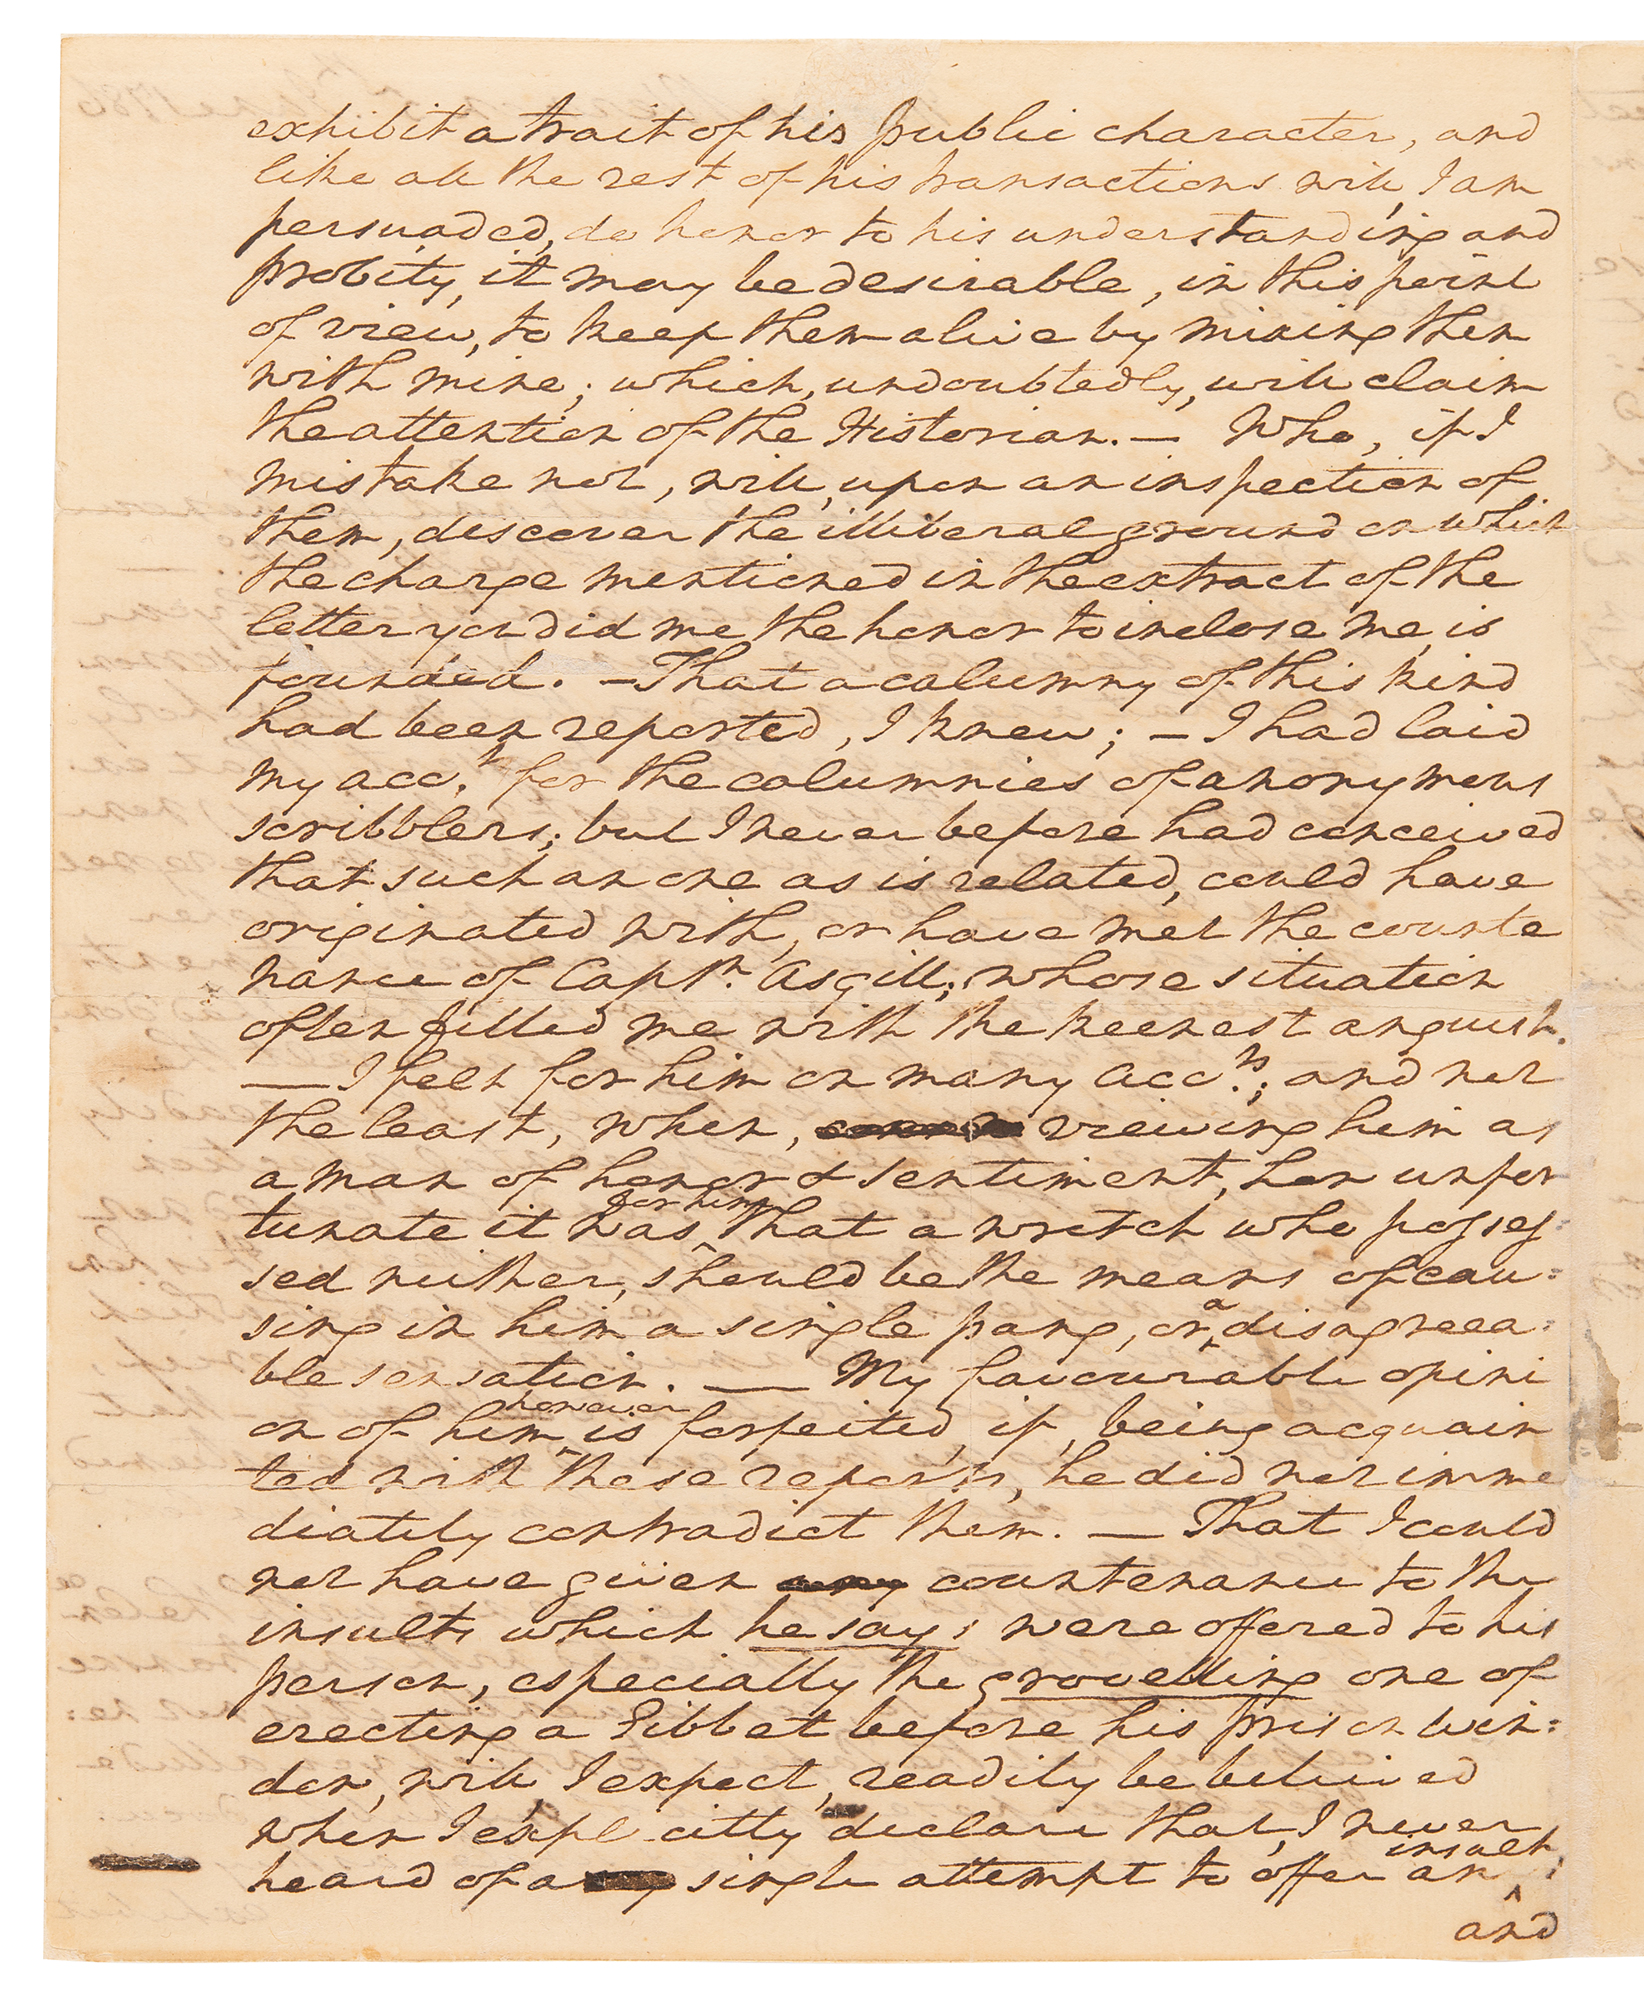 exhibit a trait of his public character, and
like all the rest of his transactions will, I am
persuaded, do honor to his understanding and
probity, it may be desirable, in this point
of view, to keep them alive by mixing them
with mine; which, undoubtedly, will claim
the attention of the Historian. — Who, if I
mistake not, will, upon an inspection of
them, discover the illiberal ground on which
the charge mentioned in the extract of the
letter you did me the honor to inclose me, is
founded. — That a calumny of this kind
had been reported, I knew; — I had laid
my acct. for the calumnies of anonymous
scribblers; but I never before had conceived
that such an one as is related, could have
originated with, or have met the counte
nance of Captn. Asgill; whose situation
often filled me with the keenest anguish.
— I felt for him on many accts.; and not
the least, when, viewing him as
a man of honor & sentiment, how unfor
tunate it was for him that a wretch who posses=
sed neither, should be the means of cau=
sing in him a single pang, or a disagreea=
ble sensation. — My favourable opini
on of him however is forfeited, if, being acquain
ted with these reports, he did not imme
diately contradict them. — That I could
not have given countenance to the
insults which he says were offered to his
person, especially the grovelling one of
erecting a Gibbet before his prison win=
dow, will, I expect, readily be believed
when I explicitly declare that, I never
heard of a single attempt to offer an insult,
and